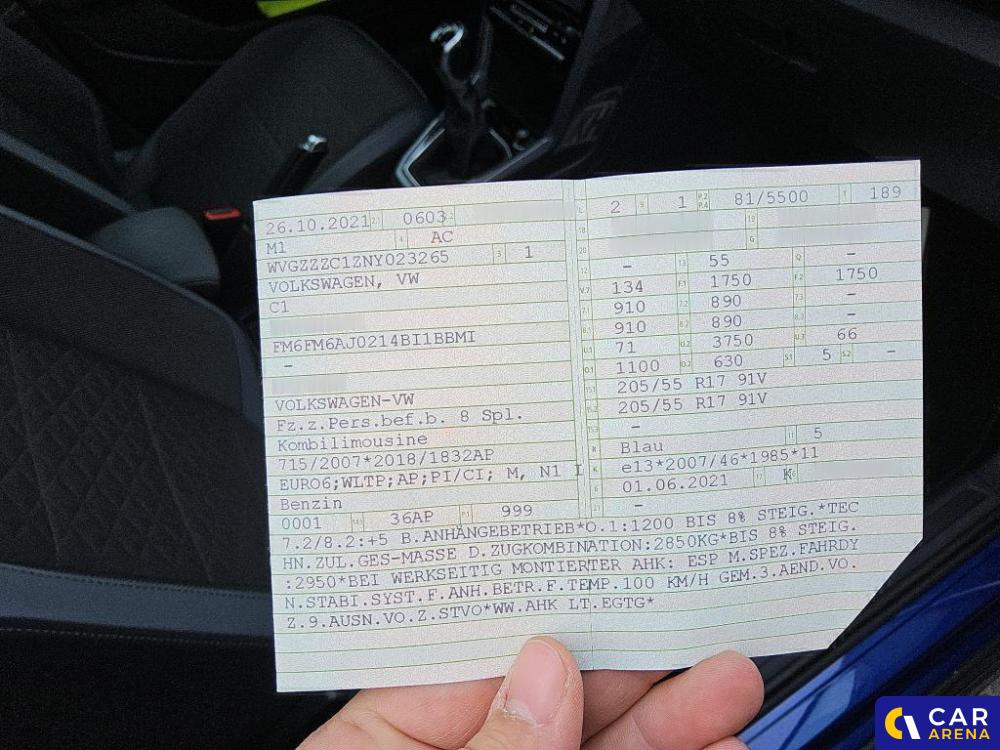 26.10.2021 2.1 0603 2.2
M1 4 AC
WVGZZZC1ZNY023265 3 1
VOLKSWAGEN, VW
C1
FM6FM6AJ0214BI1BBMI
–
VOLKSWAGEN-VW
Fz.z.Pers.bef.b. 8 Spl.
Kombilimousine
715/2007*2018/1832AP
EURO6;WLTP;AP;PI/CI; M, N1 I
Benzin
0001 14.1 36AP P.1 999
L 2 9 1 P.2 P.4 81/5500 T 189
18 19
20 G
12 – 13 55 Q –
V.7 134 F.1 1750 F.2 1750
7.1 910 7.2 890 7.3 –
8.1 910 8.2 890 8.3 –
U.1 71 U.2 3750 U.3 66
O.1 1100 O.2 630 S.1 5 S.2 –
15.1 205/55 R17 91V
15.2 205/55 R17 91V
15.3 –
R Blau 11 5
K e13*2007/46*1985*11
6 01.06.2021 17 K
21 –
7.2/8.2:+5 B.ANHÄNGEBETRIEB*O.1:1200 BIS 8% STEIG.*TEC
HN.ZUL.GES-MASSE D.ZUGKOMBINATION:2850KG*BIS 8% STEIG.
:2950*BEI WERKSEITIG MONTIERTER AHK: ESP M.SPEZ.FAHRDY
N.STABI.SYST.F.ANH.BETR.F.TEMP.100 KM/H GEM.3.AEND.VO.
Z.9.AUSN.VO.Z.STVO*WW.AHK LT.EGTG*
CAR
ARENA